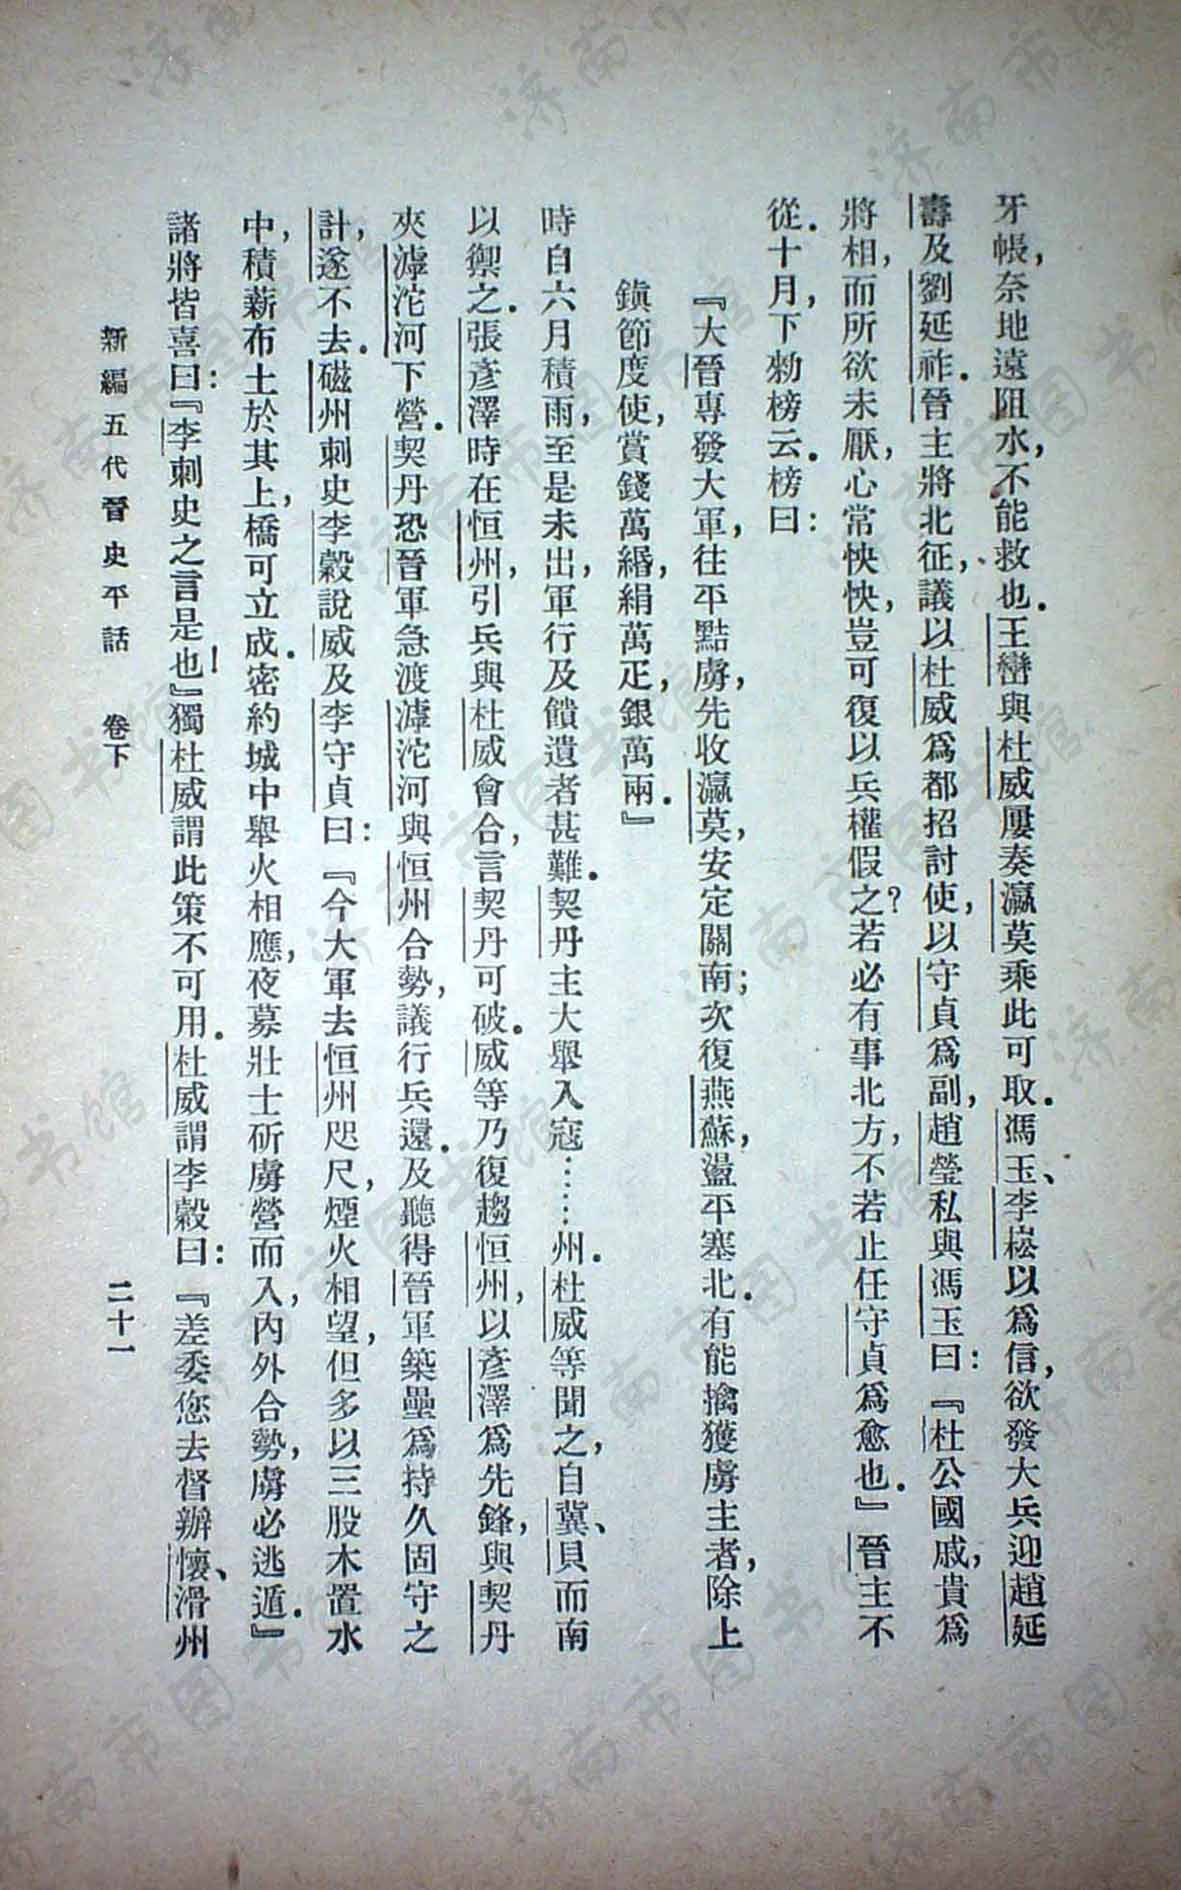 牙帳，奈地遠阻水，不能救也．王巒與杜威屢奏瀛莫乘此可取．馮玉、李崧以爲信，欲發大兵迎趙延
壽及劉延祚．晉主將北征，議以杜威爲都招討使，以守貞爲副，趙瑩私與馮玉曰：『杜公國戚，貴爲
將相，而所欲未厭，心常怏怏，豈可復以兵權假之？若必有事北方，不若止任守貞爲愈也．』晉主不
從．十月，下勑榜云．榜曰：
『大晉專發大軍，往平黠虜，先收瀛莫，安定關南；次復燕蘇，盪平塞北．有能擒獲虜主者，除上
鎭節度使，賞錢萬緡，絹萬疋，銀萬兩．』
時自六月積雨，至是未出，軍行及饋遺者甚難．契丹主大舉入寇……州．杜威等聞之，自冀、貝而南
以禦之．張彥澤時在恒州，引兵與杜威會合，言契丹可破．威等乃復趨恒州，以彥澤爲先鋒，與契丹
夾滹沱河下營．契丹恐晉軍急渡滹沱河與恒州合勢，議行兵還．及聽得晉軍築壘爲持久固守之
計，遂不去．磁州刺史李穀說威及李守貞曰：『今大軍去恒州咫尺，煙火相望，但多以三股木置水
中，積薪布土於其上，橋可立成．密約城中舉火相應，夜募壯士斫虜營而入，內外合勢，虜必逃遁．』
諸將皆喜曰：『李刺史之言是也！』獨杜威謂此策不可用．杜威謂李穀曰：『差委您去督辦懷、滑州
新編五代晉史平話　卷下　二十一
济南市图书馆